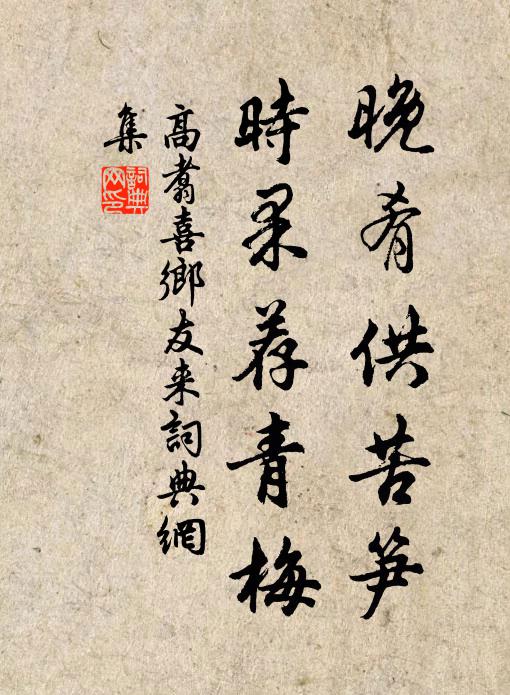 晚肴供苦笋
時果荐青梅
高翥喜鄉友来詞典網
集
詞典
网印